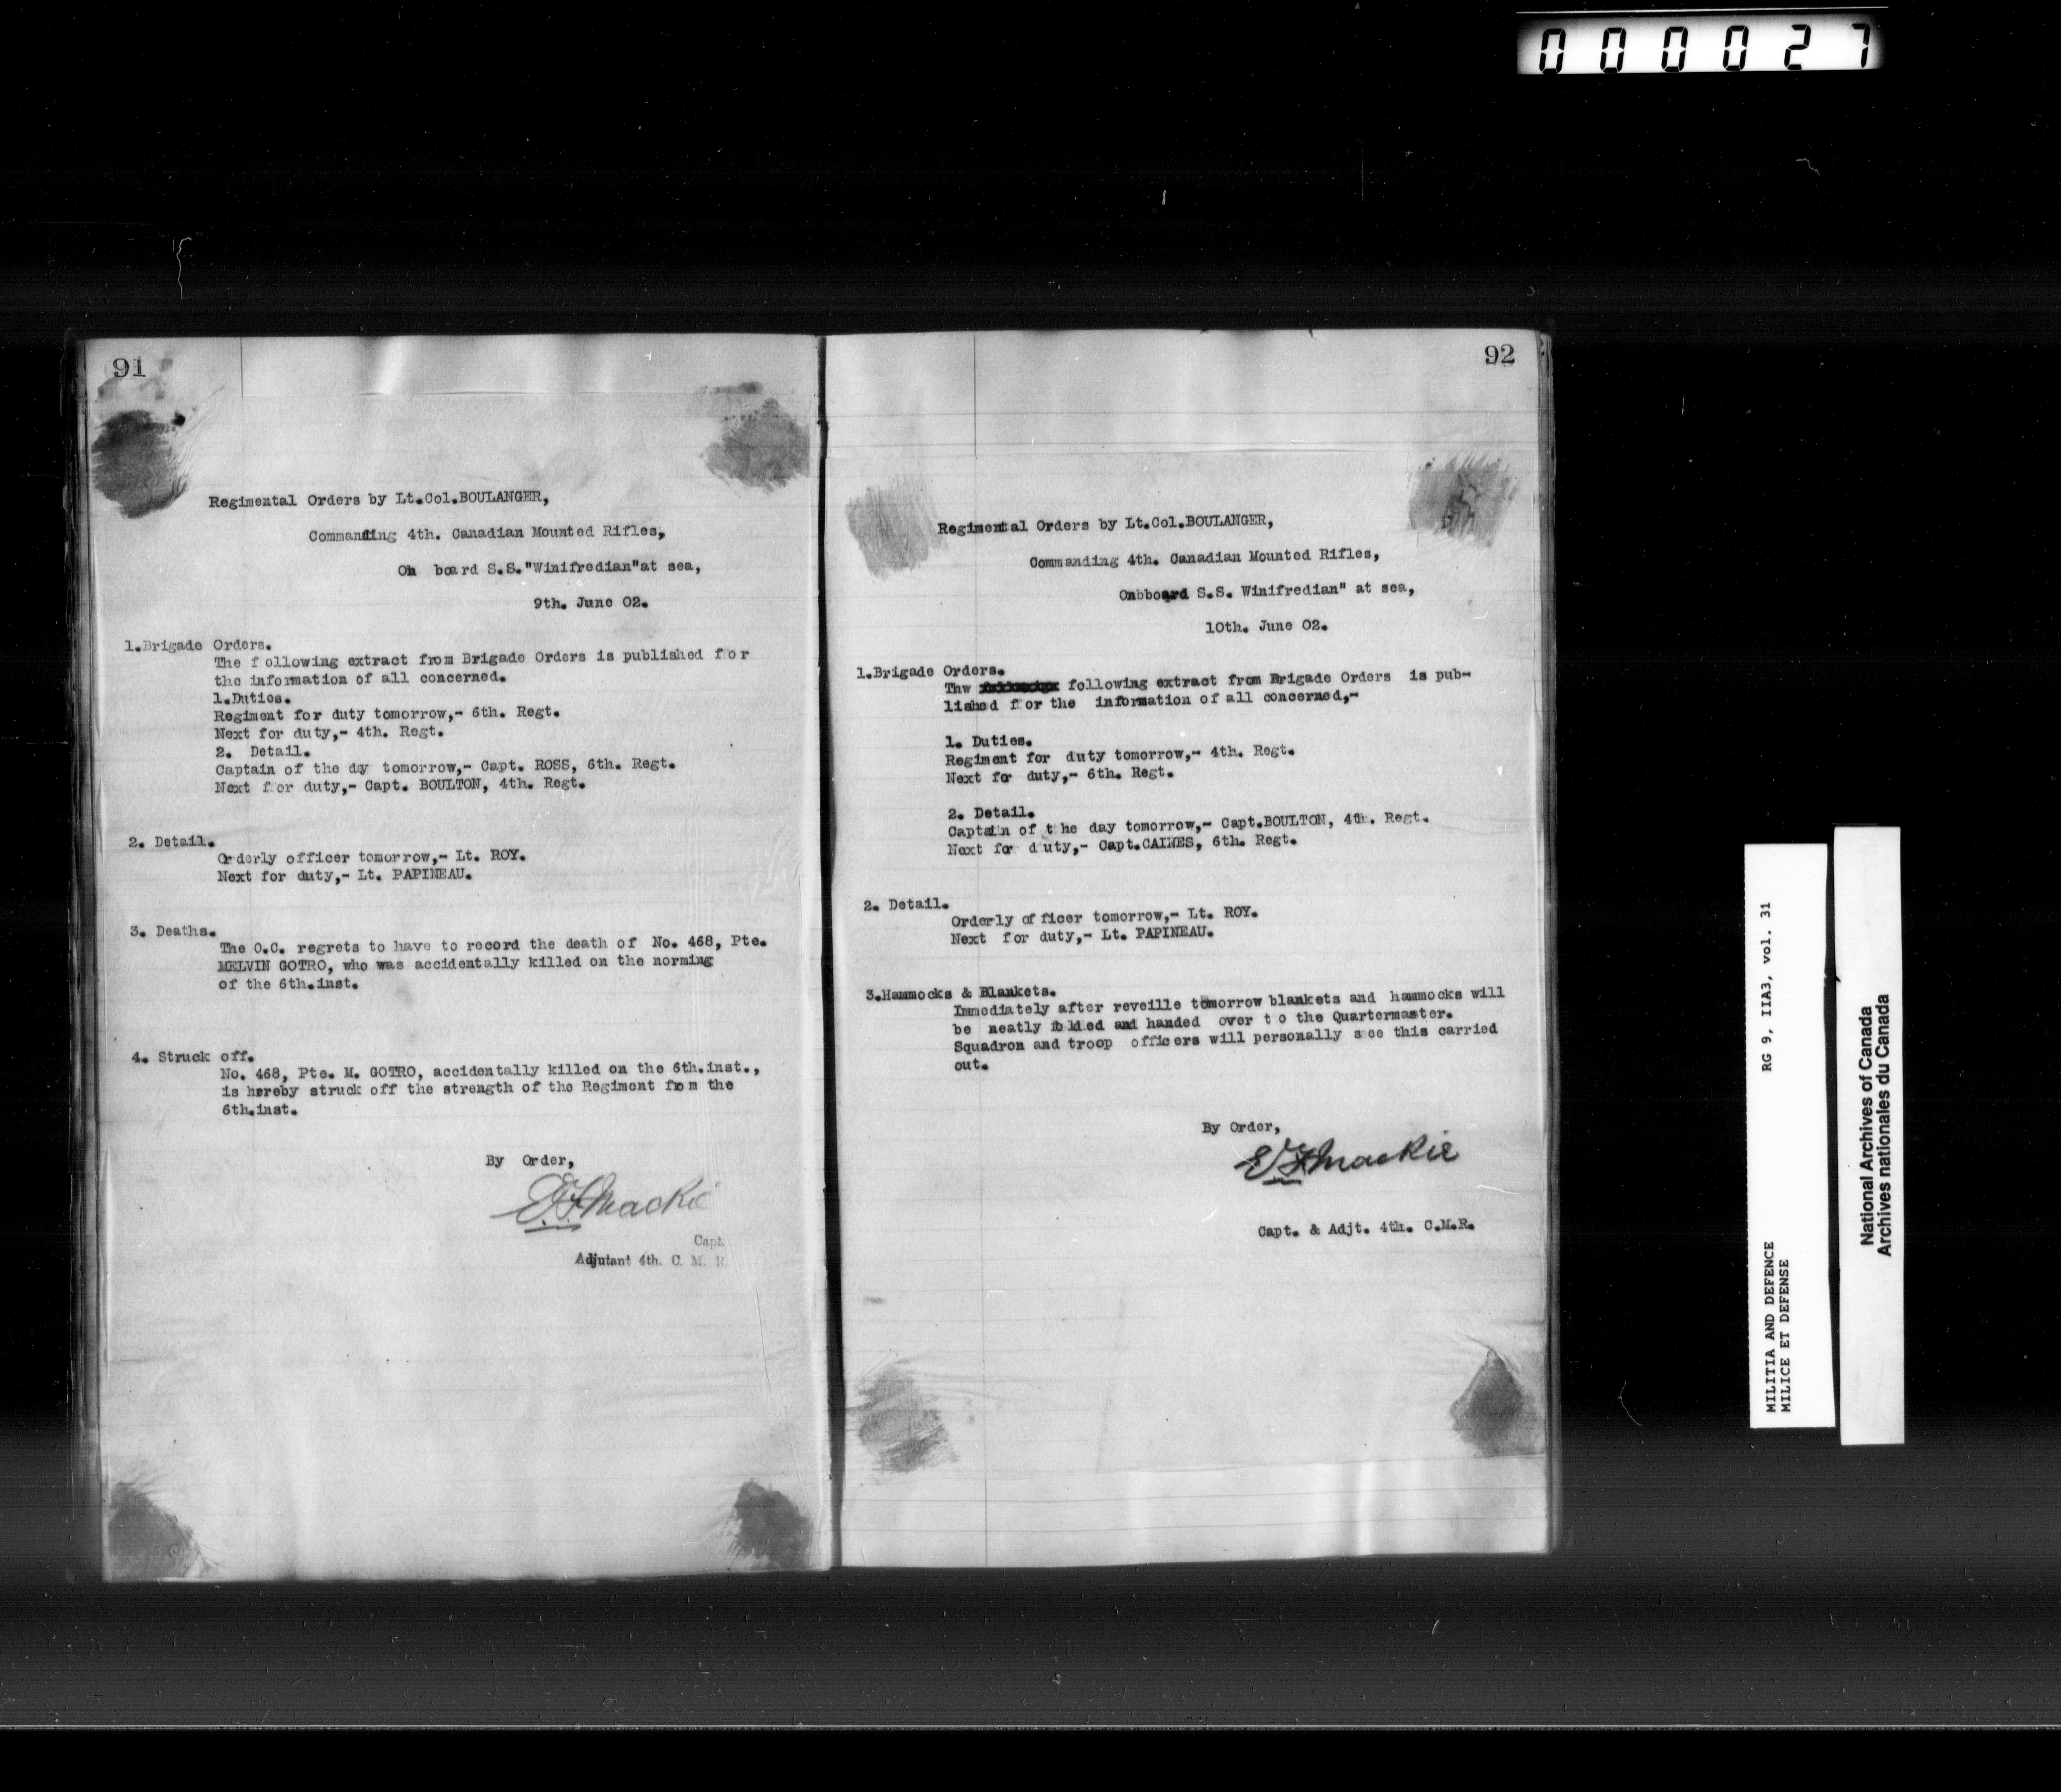 000027
91
Regimental Orders by Lt.Col.BOULANGER,
Commanding 4th. Canadian Mounted Rifles,
On board S.S."Winifredian"at sea,
9th. June 02.
1.Brigade Orders.
The following extract from Brigade Orders is published for
the information of all concerned.
1.Duties.
Regiment for duty tomorrow,- 6th. Regt.
Next for duty,- 4th. Regt.
2. Detail.
Captain of the day tomorrow,- Capt. ROSS, 6th. Regt.
Next for duty,- Capt. BOULTON, 4th. Regt.
2. Detail.
Orderly officer tomorrow,- Lt. ROY.
Next for duty,- Lt. PAPINEAU.
3. Deaths.
The O.C. regrets to have to record the death of No. 468, Pte.
MELVIN GOTRO, who was accidentally killed on the norming
of the 6th.inst.
4. Struck off.
No. 468, Pte. M. GOTRO, accidentally killed on the 6th.inst.,
is hereby struck off the strength of the Regiment from the
6th.inst.
By Order,
E.F.Mackie
Capt.
Adjutant 4th. C. M. R
92
Regimental Orders by Lt.Col.BOULANGER,
Commanding 4th. Canadian Mounted Rifles,
Onbboard S.S. Winifredian" at sea,
10th. June 02.
1.Brigade Orders.
Thw following extract from Brigade Orders is pub-
lished for the information of all concerned,-
1. Duties.
Regiment for duty tomorrow,- 4th. Regt.
Next for duty,- 6th. Regt.
2. Detail.
Captain of the day tomorrow,- Capt.BOULTON, 4th. Regt.
Next for duty,- Capt.CAINES, 6th. Regt.
2. Detail.
Orderly officer tomorrow,- Lt. ROY.
Next for duty,- Lt. PAPINEAU.
3.Hammocks & Blankets.
Immediately after reveille tomorrow blankets and hammocks will
be neatly folded and handed over to the Quartermaster.
Squadron and troop officers will personally see this carried
out.
By Order,
E.F.Mackie
Capt. & Adjt. 4th. C.M.R.
MILITIA AND DEFENCE RG 9, IIA3, vol. 31
MILICE ET DEFENSE
National Archives of Canada
Archives nationales du Canada